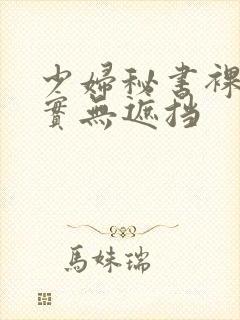 少婦秘書裸
實無遮挡
馬妹瑞